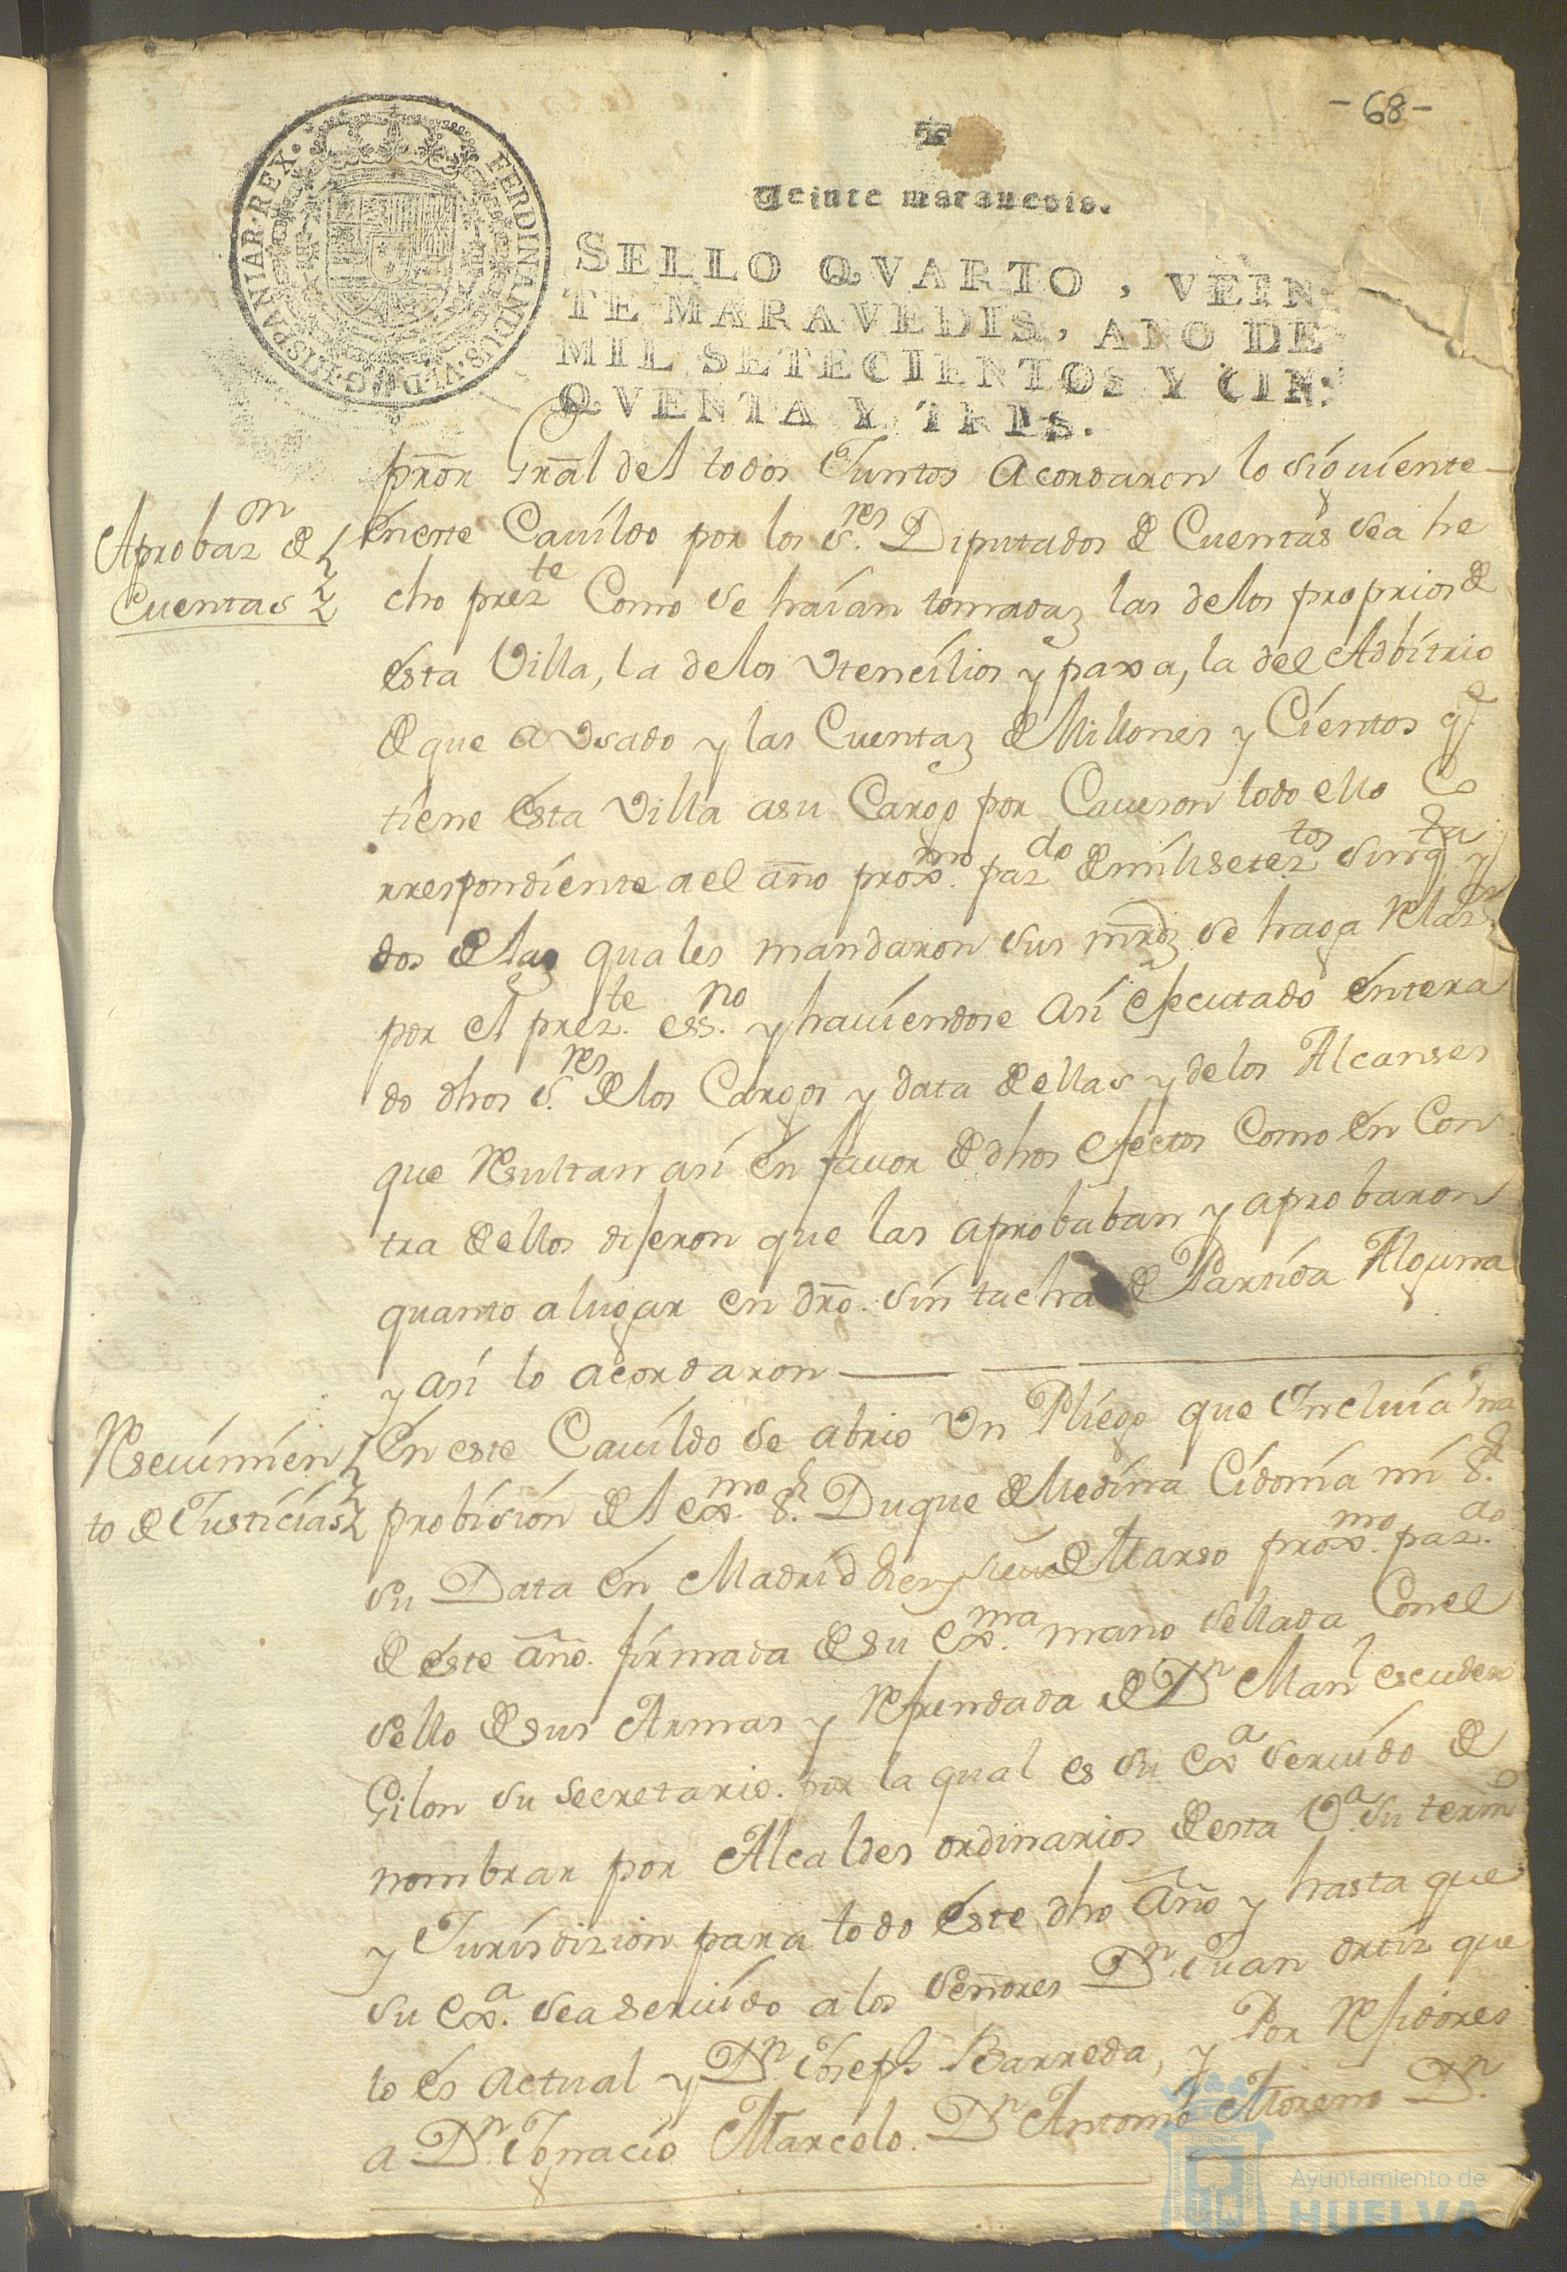 -68-
FERDINANDUS·VI·D·G·HISPANIAR·REX·
Veinte marauedis.
SELLO QVARTO, VEIN-
TE MARAVEDIS, AÑO DE
MIL SETECIENTOS Y CIN-
QVENTA Y TRES.
prõr Grãl del todos Juntos Acordaron lo siguiente
Aprobazon de
Cuentas
en este Cauildo por los Sres. Diputados de Cuentas sea he
cho prezte Como se haían tomadaz las delos proprios de
esta Villa, la delos Vtencilios y paxa, la del Adbitrio
de que a Vsado y las Cuentaz de Millones y Cientos qe.
tiene esta Villa asu Cargo por Caueson todo ello Co
rrespondiente a el año proxmo. pazdo de mill seteztos sinqta y
dos de laz quales mandaron sus mrdz. se haga Relazon
por el prezte. essno. y hauiendose Asi ejecutado entera
do dhos Sres. de los Cargos y data de ellas y de los Alcanses
que Resultan asi en fauor de dhos efectos Como en Con
tra de ellos dijeron que las aprobaban y aprobaron
quanto a lugar en drõ. sin tacha de Partida Alguna
y asi lo acordaron
Reseuimien
to de Justicias
en este Cauildo se abrio Vn Pliego que Incluia Vna
probision del exmo. Sr. Duque de Medina Cidonia mi Sr.
su Data en Madrid de Marso proxmo. pazdo.
de este año. firmada de su exma. mano sellada Con el
sello de sus Armas y Refrendada de Dn Manl escudero
Gilon su secretario. por la qual es su exa seruido de
nombrar por Alcaldes ordinarios de esta Va. su termo
y Jurisdizion para todo este dho año y hasta que
su exa. sea seruido a los señores Dn. Juan ortiz que
lo es actual y Dn. Joseph Barreda, y Por Rejidores
a Dn. Ignacio Marcelo. Dn Antonio Moreno Dn.
Ayuntamiento de
HUELVA